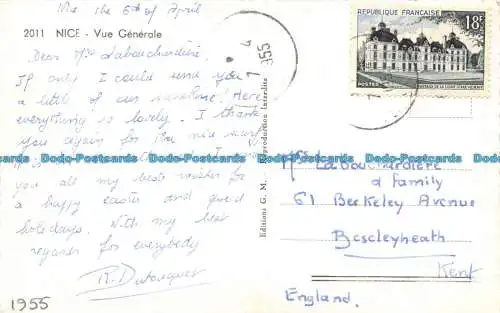 Nice the 6th of April
2011 NICE - Vue Générale
Dear Mrs Labouchardière,
If only I could send you
a little of our sunshine. Here
everything is lovely. I thank
you again for the nice
you all my best wishes for
a happy easter and good
holidays. With my best
regards for everybody
R. Dubosquet
1955
Editions G. M.
Reproduction Interdite
4
1955
REPUBLIQUE FRANÇAISE
18F
POSTES
Mrs Labouchardière
& family
61 Berkeley Avenue
Bexcleyheath
Kent
England.
Dodo-Postcards Dodo-Postcards Dodo-Postcards Dodo-Postcards Dodo-Postcards